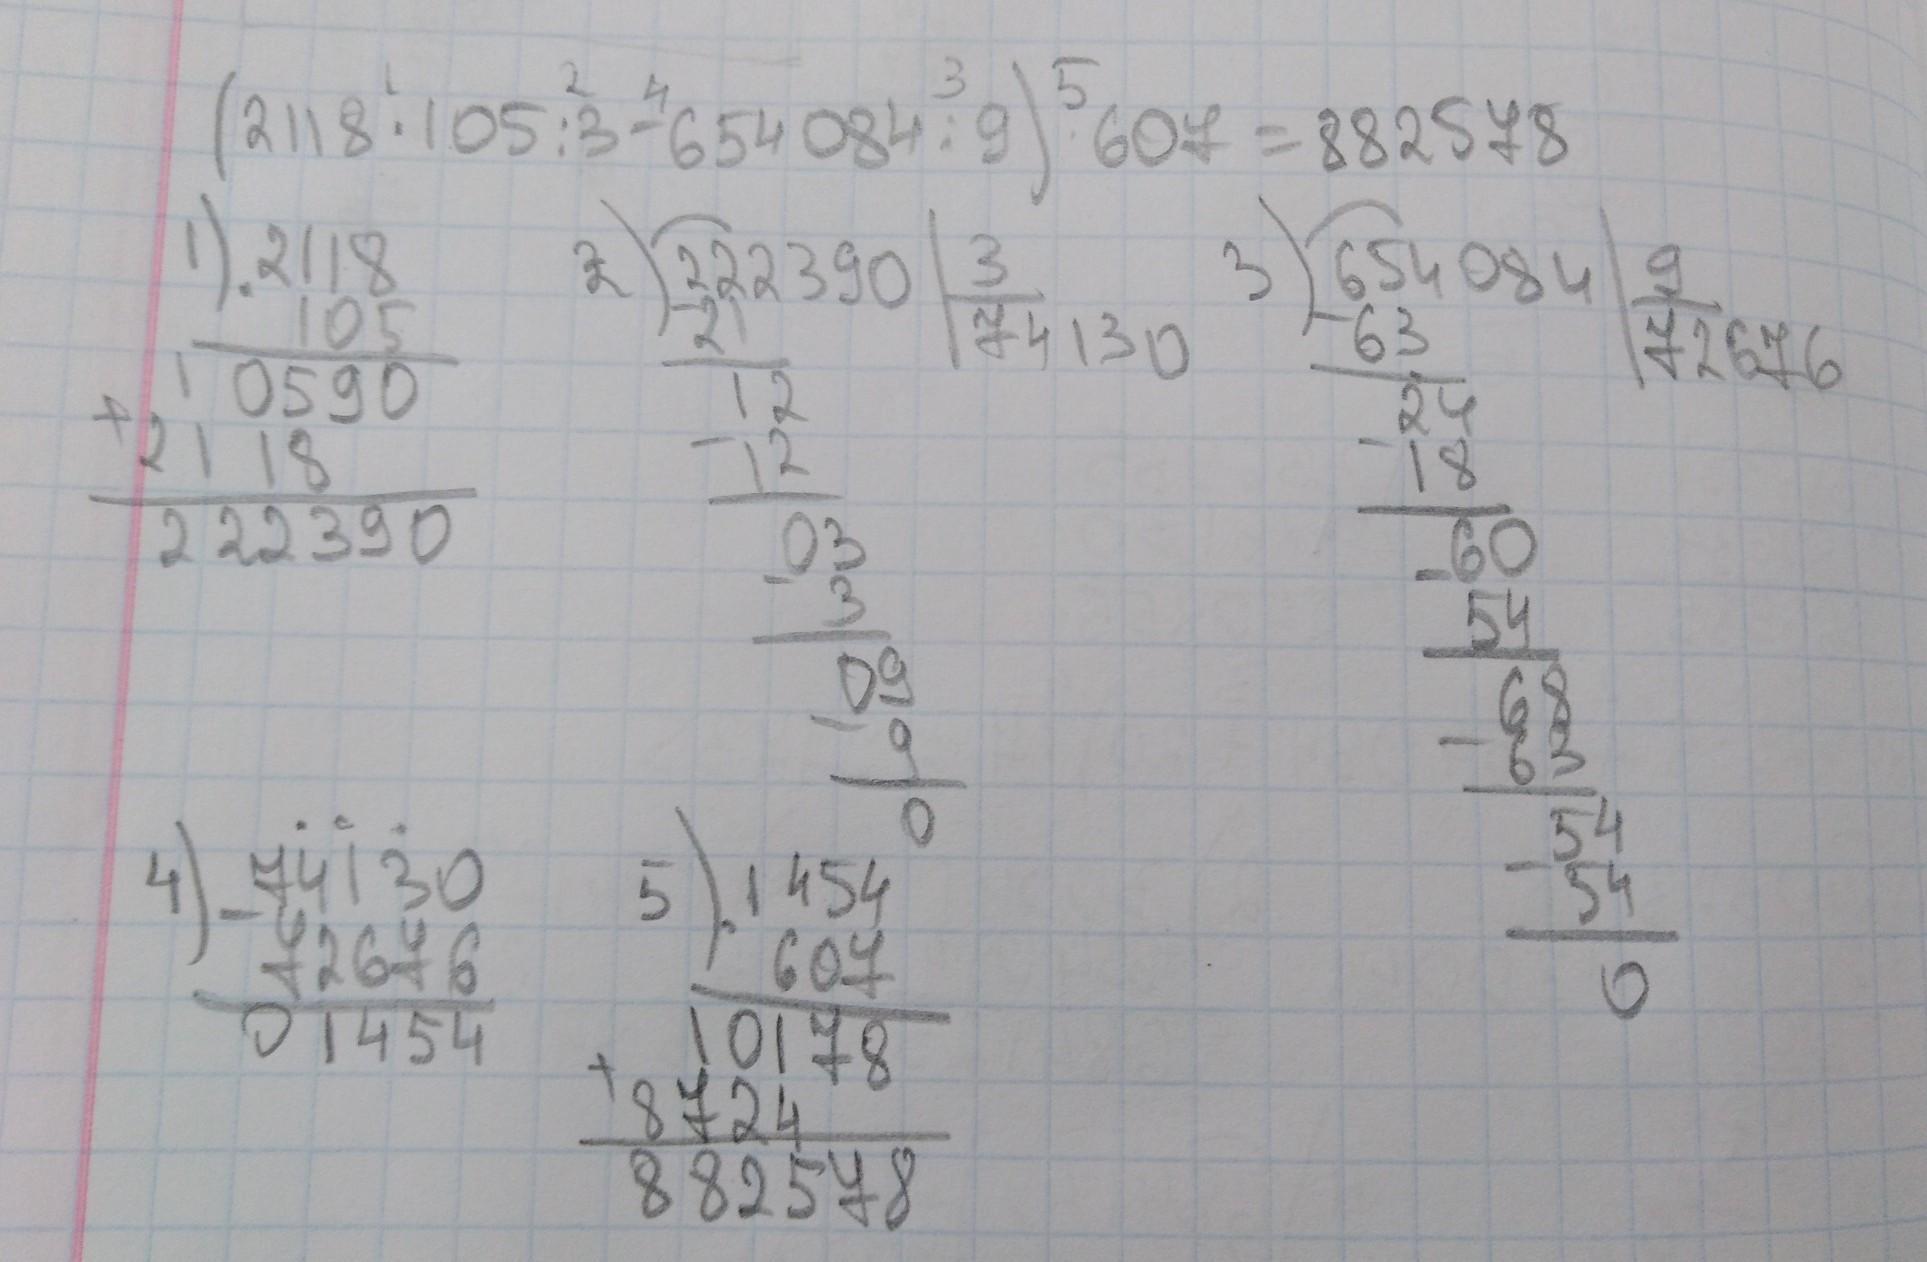 (2118·105:3-654084:9)·607=882578
1 2 4 3 5
1) ·2118
105
10590
+2118
222390
2) 222390 | 3
-21 74130
12
-12
03
-3
09
-9
0
3) 654084 | 9
-63 72676
24
-18
-60
54
68
-63
54
-54
0
4) -74130
72676
01454
5) ·1454
607
10178
+8724
882578